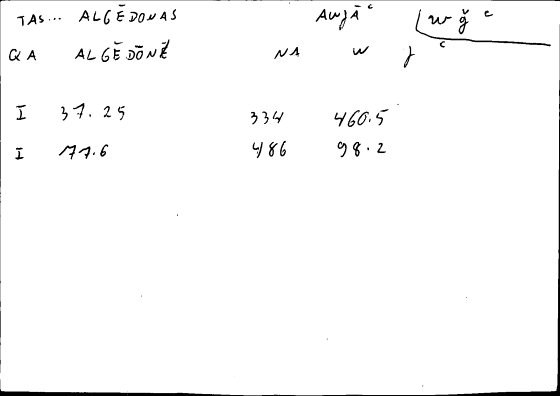 TAS... ALGĒDONAS AWJĀᶜ w ǧ ᶜ
QA ALGĒDŌNĒ NA W J ᶜ
I 37.25 334 460.5
I 77.6 486 98.2